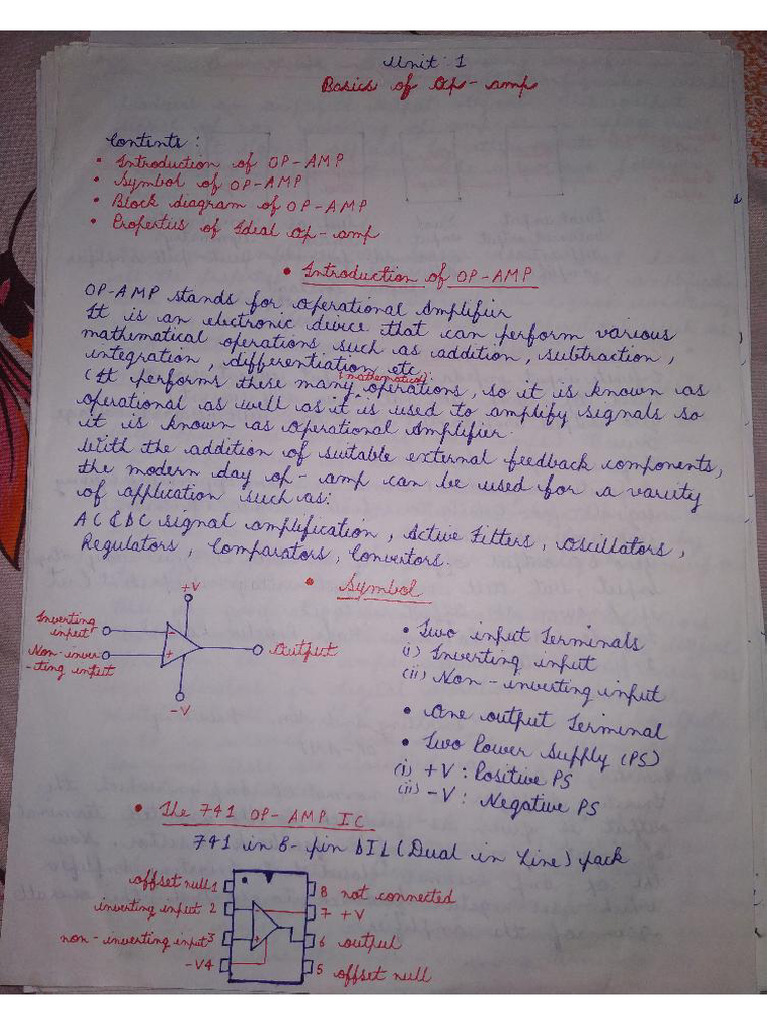 Unit : 1
Basics of Op-amp
Contents :
• Introduction of OP-AMP
• Symbol of OP-AMP
• Block diagram of OP-AMP
• Properties of Ideal Op-amp
• Introduction of OP-AMP
OP-AMP stands for Operational Amplifier
It is an electronic device that can perform various
mathematical operations such as addition, subtraction,
integration, differentiation etc.
(mathematical)
(It performs these many operations, so it is known as
operational as well as it is used to amplify signals so
it is known as Operational Amplifier.
With the addition of suitable external feedback components,
the modern day op-amp can be used for a variety
of application such as:
AC & DC signal amplification, Active Filters, Oscillators,
Regulators, Comparators, Convertors.
• Symbol
+V
Inverting
input
-
Non-inver
-ting input
+
Output
-V
• Two input Terminals
(i) Inverting input
(ii) Non-inverting input
• One output Terminal
• Two Power Supply (PS)
(i) +V : Positive PS
(ii) -V : Negative PS
• The 741 OP-AMP IC
741 in 8-pin DIL (Dual in Line) pack
offset null 1
8 not connected
inverting input 2
7 +V
-
non-inverting input 3
+
6 output
-V 4
5 offset null